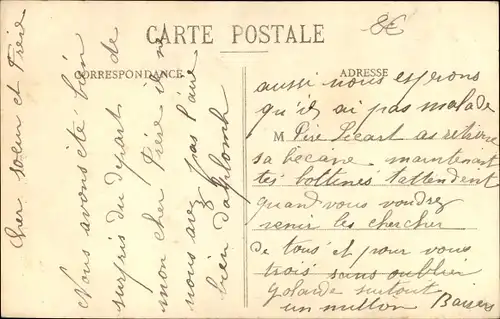 CARTE POSTALE
8€
CORRESPONDANCE
ADRESSE
M
Cher soeur et Frère
Nous avons été bien
surpris du départ de
mon cher Frère il ne
nous avez pas l'air
bien d'aplomb
aussi nous esperons
qu'il ai pas malade
Père Licart as retirer
sa becane maintenant
tes bottines t'attendent
quand vous voudrez
venir les chercher
de tous et pour vous
trois sans oublier
Yolande surtout
un million Baisers